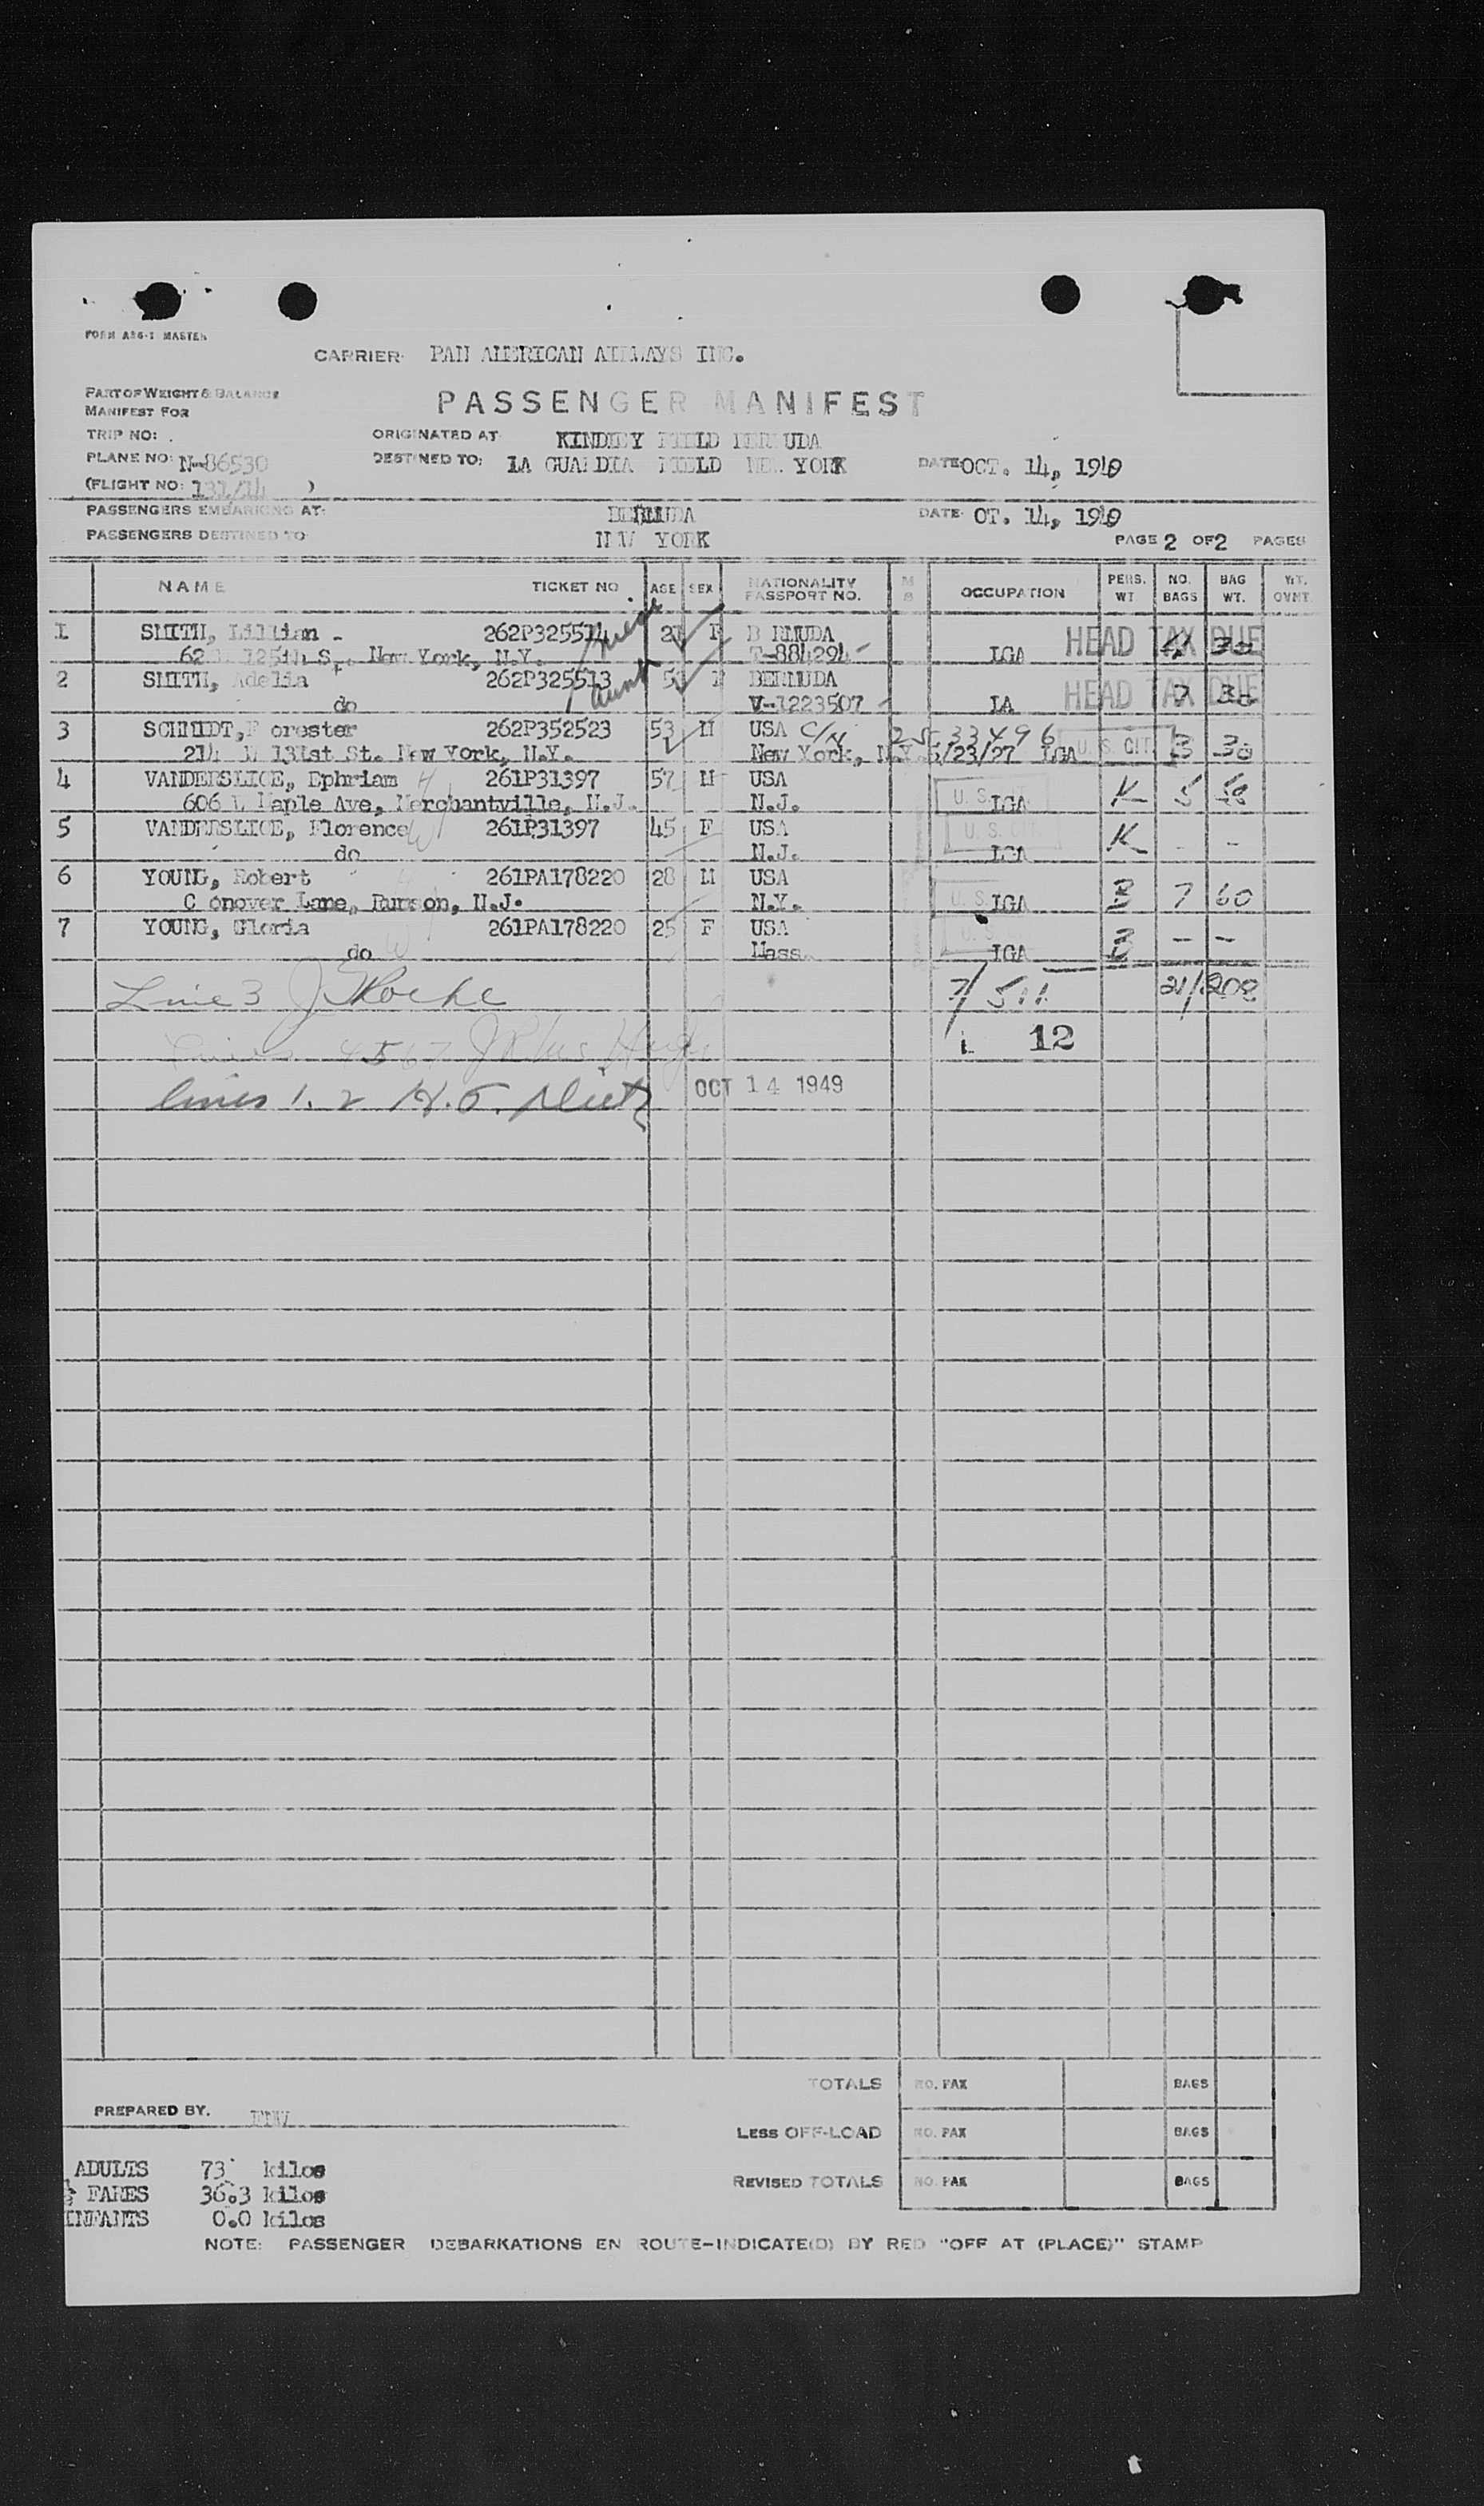 FORM A86-1 MASTER
CARRIER: PAN AMERICAN AIRWAYS INC.
PASSENGER MANIFEST
PART OF WEIGHT & BALANCE
MANIFEST FOR
TRIP NO:
PLANE NO: N-86530
(FLIGHT NO: 131/14 )
ORIGINATED AT KINDLEY FIELD BERMUDA
DESTINED TO: LA GUARDIA FIELD NEW YORK DATE OCT. 14, 1949
PASSENGERS EMBARKING AT: BERMUDA DATE OT. 14, 1949
PASSENGERS DESTINED TO NEW YORK PAGE 2 OF 2 PAGES
NAME TICKET NO AGE SEX NATIONALITY PASSPORT NO. OCCUPATION PERS. WT NO. BAGS BAG WT. WT. OVNT.
1 SMITH, Lillian - 262P325514 niece F B RMUDA HEAD TAX DUE 4 30
125th St. New York, N.Y. T-884294 LGA
2 SMITH, Adelia 262P325513 aunt F BERMUDA HEAD TAX DUE 30
do V-1223507 LA
3 SCHMIDT, F orester 262P352523 53 M USA C/N 2533496 U. S. CIT. 3 30
214 W 131st St. New York, N.Y. New York, N.Y. 5/23/27 LGA
4 VANDERSLICE, Ephriam H 261P31397 57 M USA U. S. CIT. K 5 58
606 Maple Ave, Merchantville, N.J. N.J. LGA
5 VANDERSLICE, Florence W 261P31397 45 F USA U. S. CIT. K - -
do N.J. LGA
6 YOUNG, Robert 261PA178220 28 M USA U. S. B 7 60
C onover Lane, Rumson, N.J. N.Y. LGA
7 YOUNG, Gloria 261PA178220 25 F USA U. S. B - -
do W Mass. LGA
Line 3 J Roche 7/511 21/208
4 5 6 7 12
lines 1. 2 OCT 14 1949
TOTALS NO. PAX BAGS
PREPARED BY.
LESS OFF-LOAD NO. PAX BAGS
REVISED TOTALS NO. PAX BAGS
ADULTS 73 kilos
½ FARES 36.3 kilos
INFANTS 0.0 kilos
NOTE: PASSENGER DEBARKATIONS EN ROUTE-INDICATE(D) BY RED "OFF AT (PLACE)" STAMP